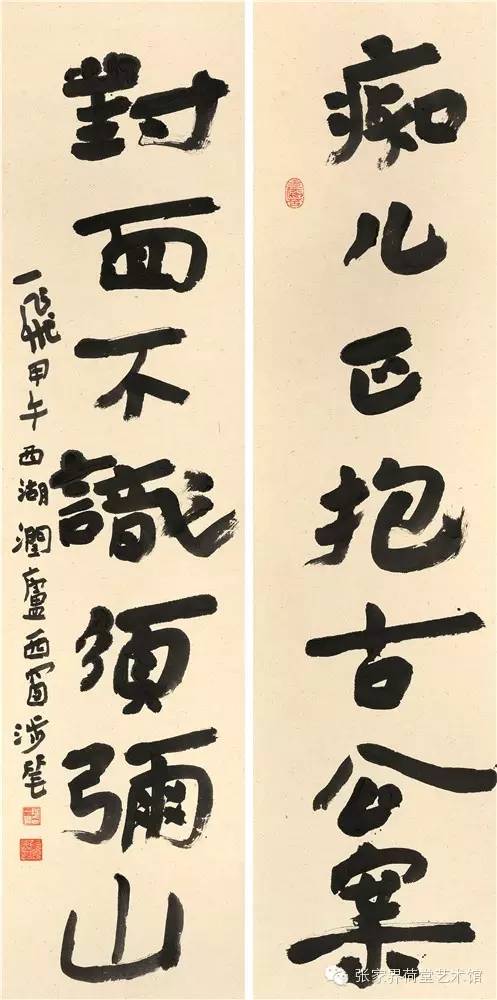 痴儿正抱古公案
對面不識須彌山
一飛甲午西湖潤廬西窗涉筆
张家界荷堂艺术馆